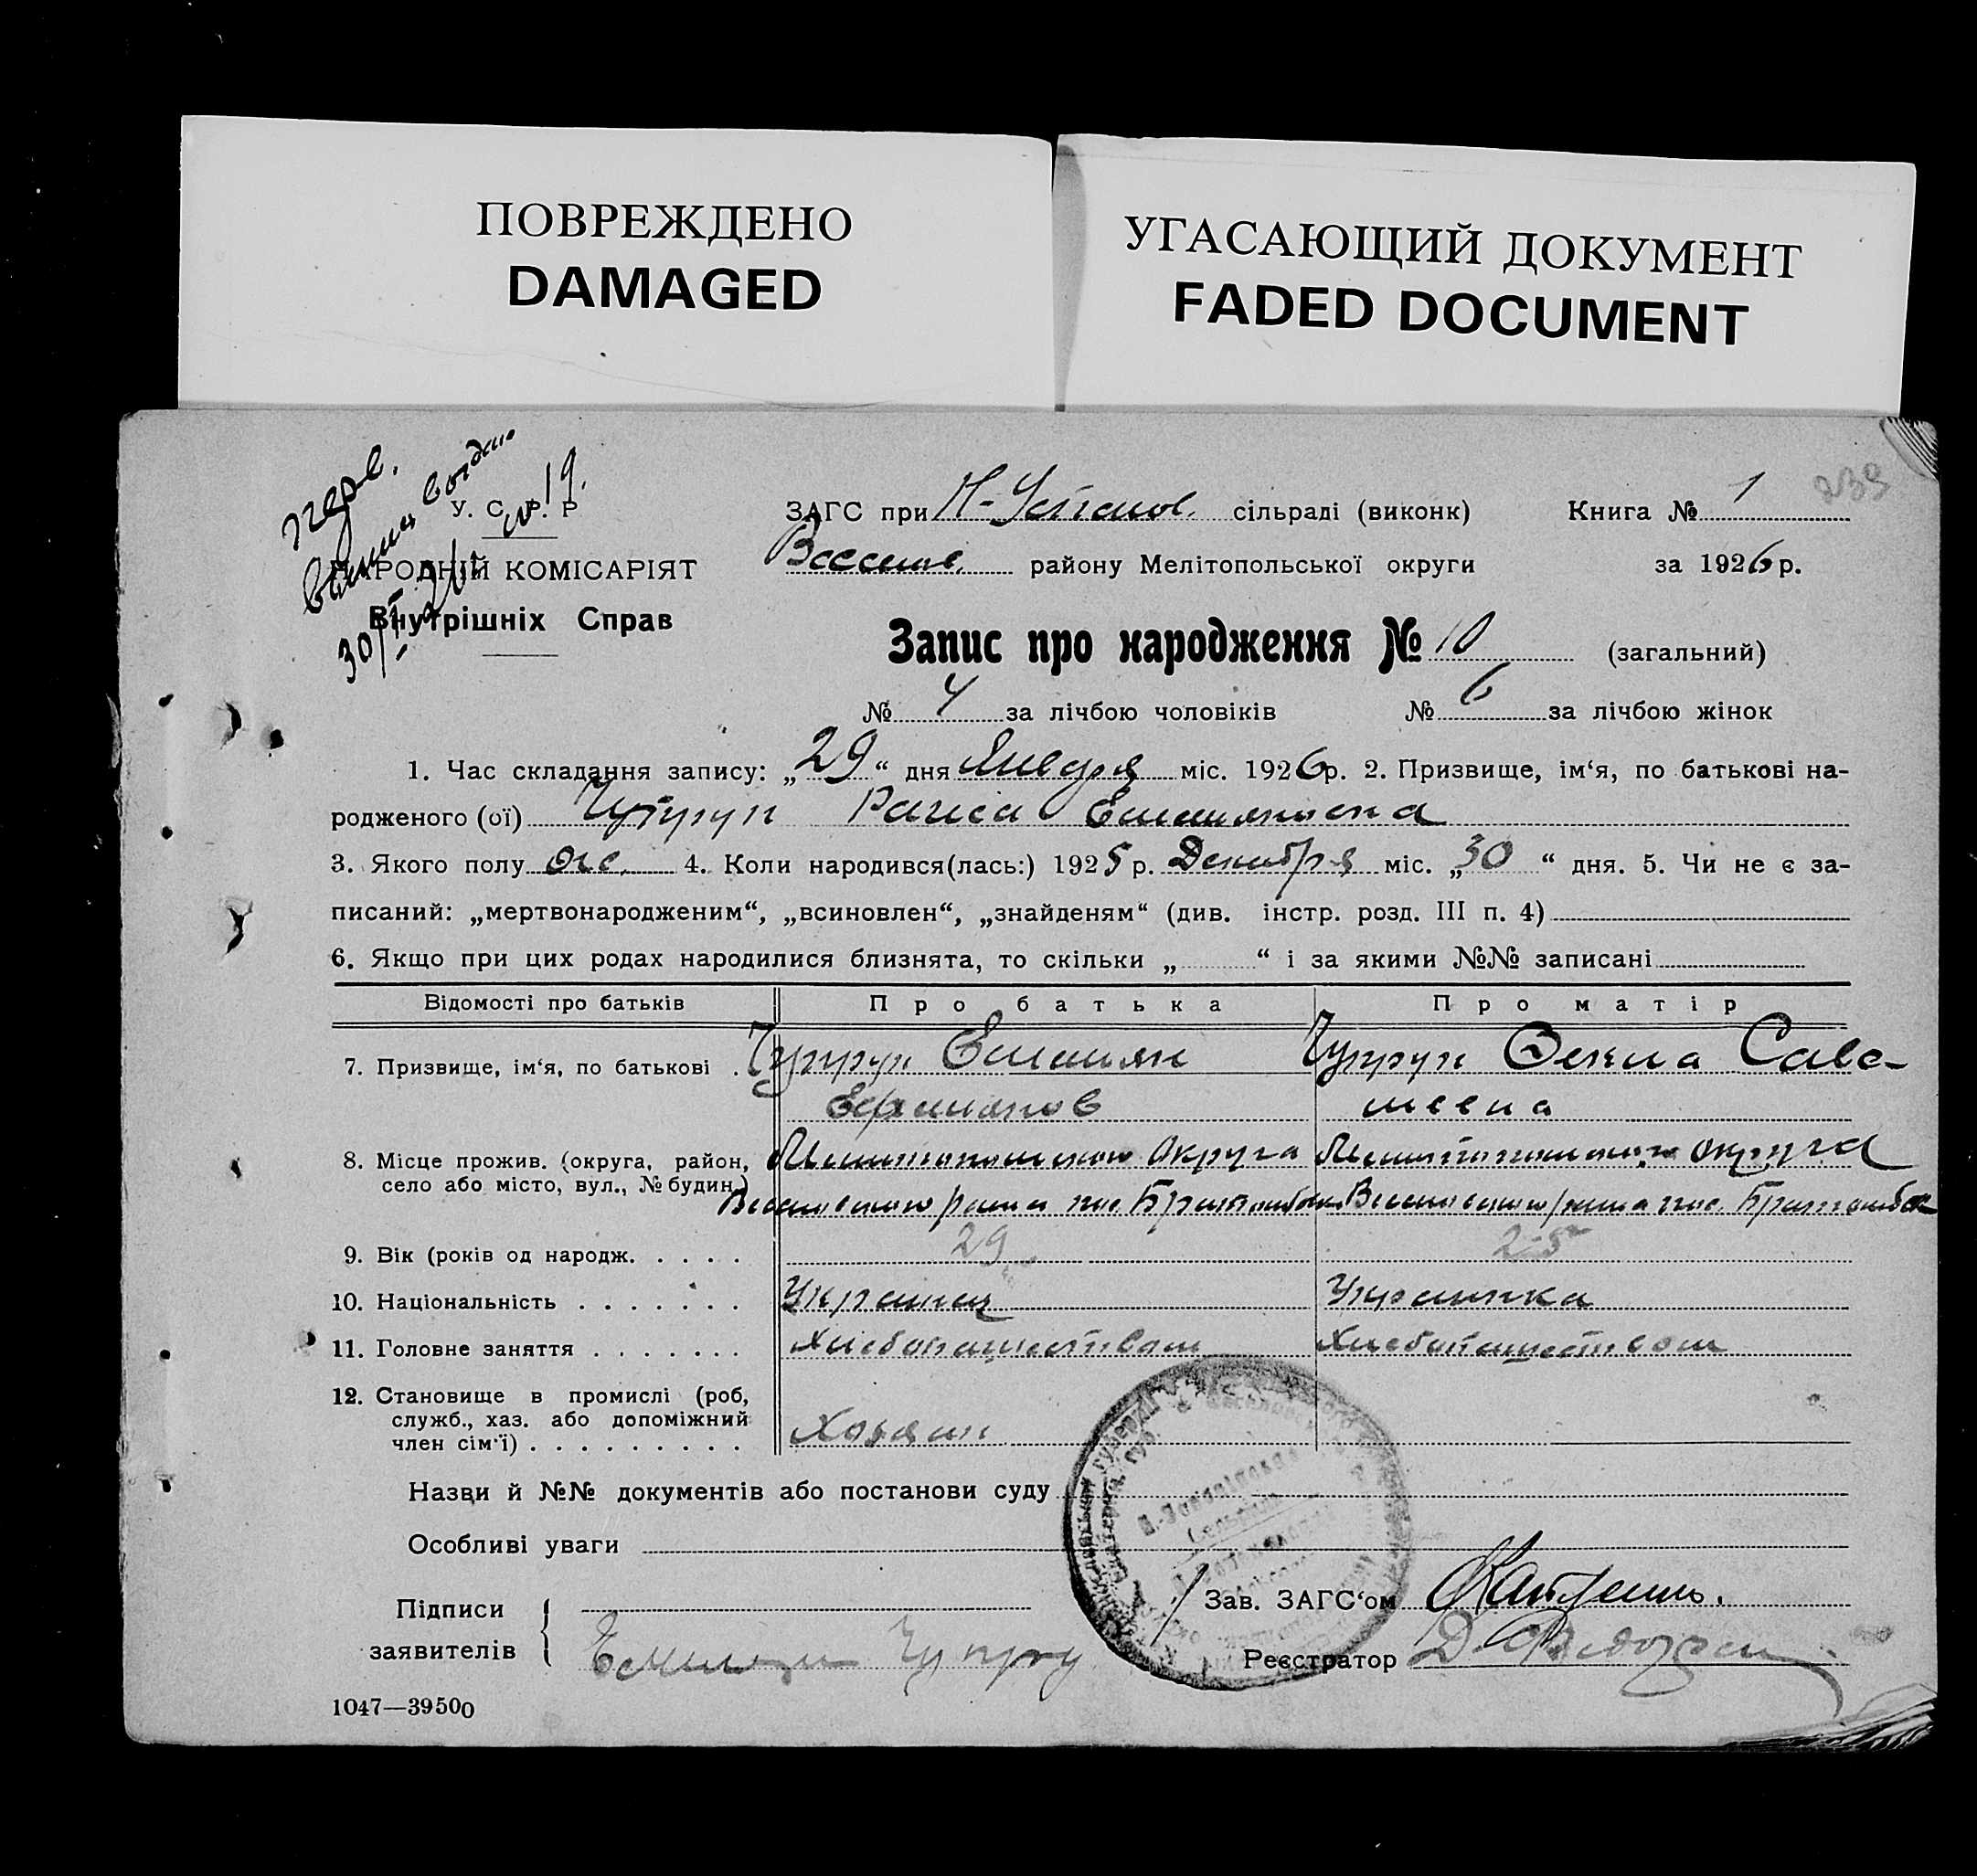 ПОВРЕЖДЕНО
DAMAGED
УГАСАЮЩИЙ ДОКУМЕНТ
FADED DOCUMENT
перв.
30/I-
У. С. Р. Р
НАРОДНІЙ КОМІСАРІЯТ
Внутрішніх Справ
ЗАГС при сільраді (виконк) Книга № 1
239
Весело. району Мелітопольської округи за 1926 р.
Запис про народження № 10 (загальний)
№ 4 за лічбою чоловіків № 6 за лічбою жінок
1. Час складання запису: „29“ дня Января міс. 1926р. 2. Призвище, ім‘я, по батькові на-
родженого (ої) Чупрун Раиса Емельяновна
3. Якого полу же. 4. Коли народився(лась:) 1925 р. Декабря міс. „30“ дня. 5. Чи не є за-
писаний: „мертвонародженим“, „всиновлен“, „знайденям“ (див. інстр. розд. III п. 4)
6. Якщо при цих родах народилися близнята, то скільки „ “ і за якими №№ записані
Відомості про батьків Про батька Про матір
7. Призвище, ім‘я, по батькові Чупрун Емельян Чупрун Фекла Саве-
льевна
8. Місце прожив. (округа, район, Мелитопольского Округа Мелитопольского округа
село або місто, вул., № будин.) Веселовского района пос. Веселовского района пос.
9. Вік (років од народж. 29 25
10. Національність Украинец Украинка
11. Головне заняття Хлебопашеством Хлебопашеством
12. Становище в промислі (роб,
служб., хаз. або допоміжний
член сім‘ї) Хозяин
Назви й №№ документів або постанови суду
Особливі уваги
Підписи
заявителів
Емельян Чупрун
Зав. ЗАГС‘ом
Реєстратор
1047—39500